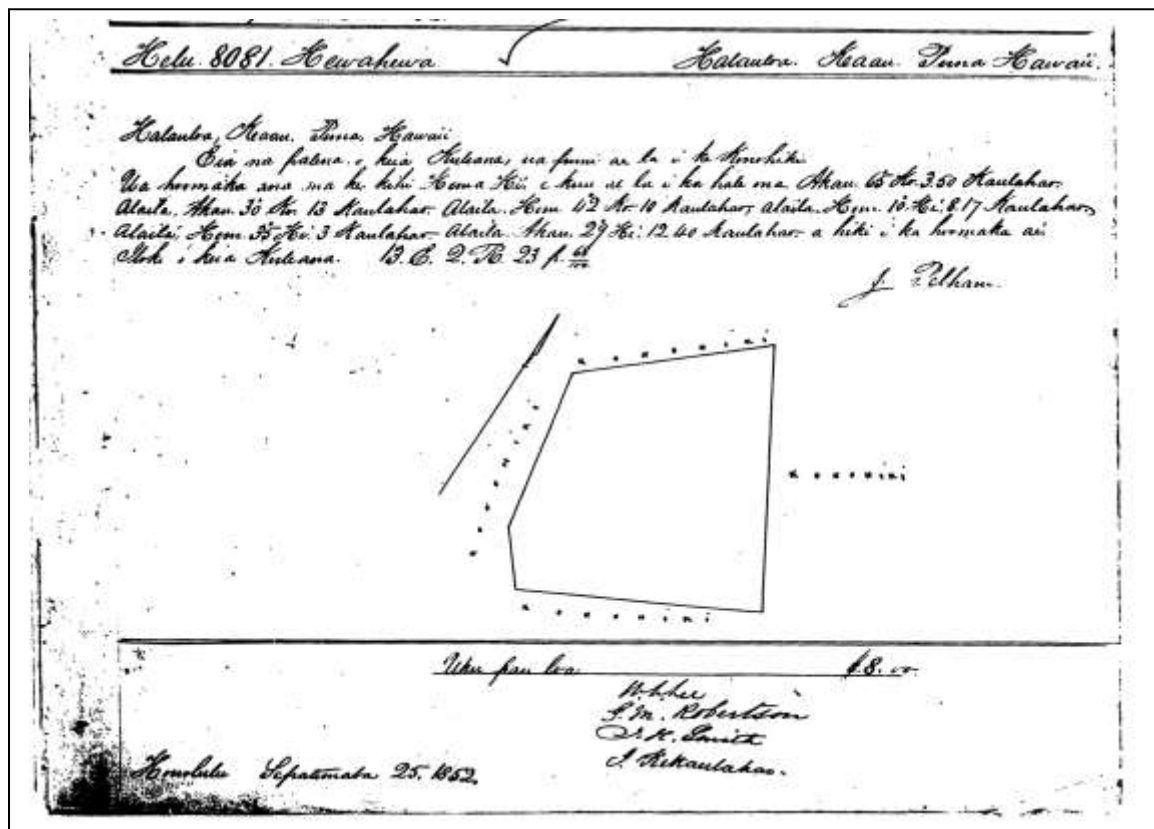 Helu. 8081. Kewahewa Halauloa. Keaau. Puna Hawaii.
Halauloa, Keaau. Puna, Hawaii
Eia na palena o keia Kuleana, ua pumi ae la i ke Konohiki
Ua hoomaka ana ma ke kihi Hema Hi. e kuu ae la i ka hale ma Akau 65 Ko. 3.50 Kaulahao.
Alaila. Akau. 30 Ko 13 Kaulahao. Alaila. Hem. 42 Ko. 10 Kaulahao, alaila. Hem. 10 Hi. 8.17 Kaulahao,
Alaila, Hem. 35 Hi. 3 Kaulahao. Alaila Akau. 29 Hi: 12.40 Kaulahao. a hiki i ka hoomaka ai
iloko i keia Kuleana. 13. E. 2. R 23 p. 68/100
J. Pelham.
Konohiki
Konohiki
Konohiki
Konohiki
Uku pau loa $8.00
W. L. Lee
G. M. Robertson
J. H. Smith
J. Kekaulahao.
Honolulu Sepatemaba 25. 1852.